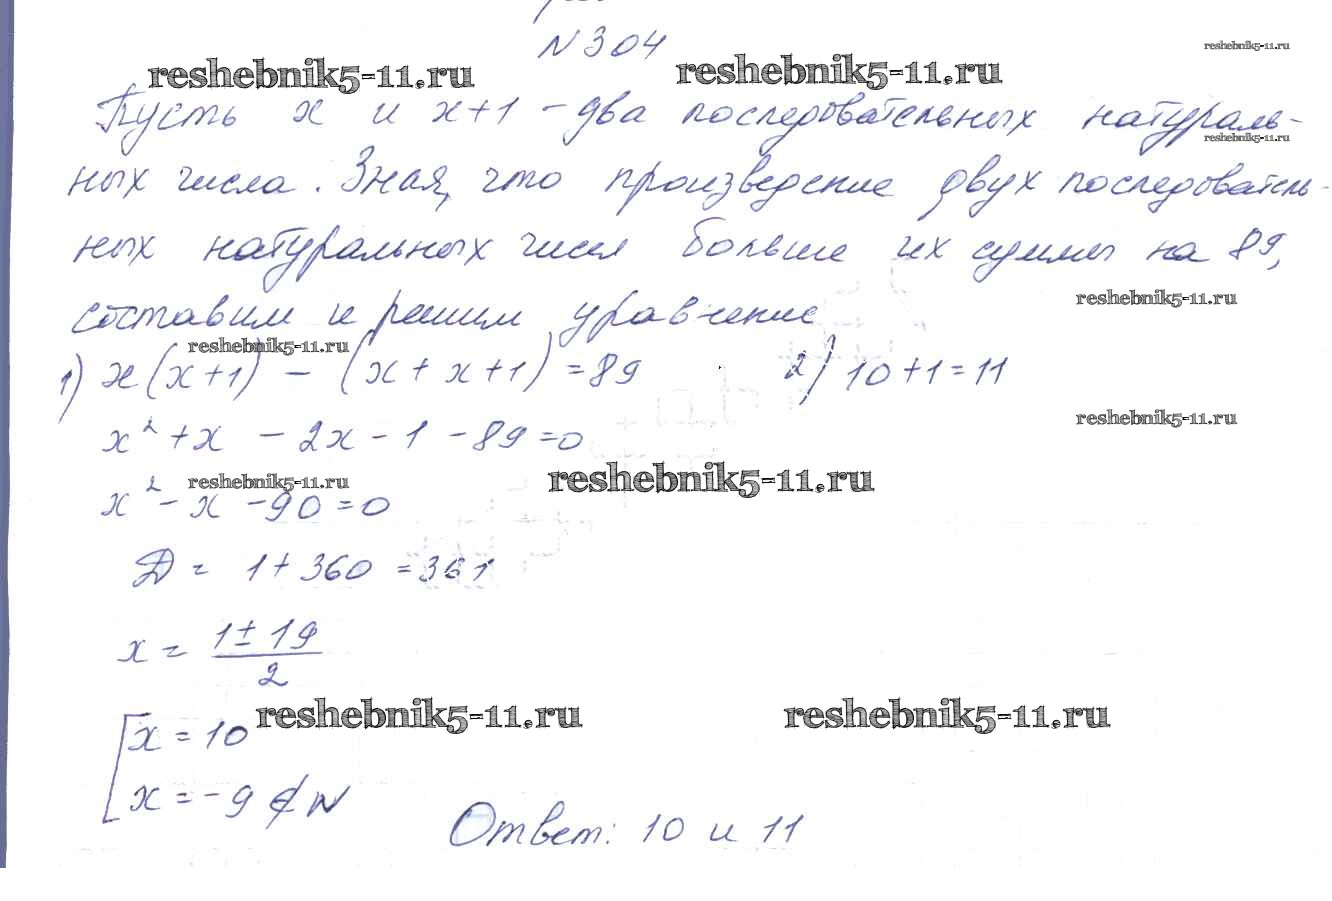 N304
reshebnik5-11.ru reshebnik5-11.ru reshebnik5-11.ru
Пусть x и x+1 - два последовательных натураль-
reshebnik5-11.ru
ных числа. Зная, что произведение двух последователь-
ных натуральных чисел больше их суммы на 89,
reshebnik5-11.ru
составим и решим уравнение
reshebnik5-11.ru
1) x(x+1) - (x+x+1) = 89 2) 10+1=11
reshebnik5-11.ru
x² + x - 2x - 1 - 89 = 0
reshebnik5-11.ru reshebnik5-11.ru
x² - x - 90 = 0
D = 1 + 360 = 361
x = (1 ± 19)/2
reshebnik5-11.ru reshebnik5-11.ru
[x = 10
x = -9 ∉ N
Ответ: 10 и 11